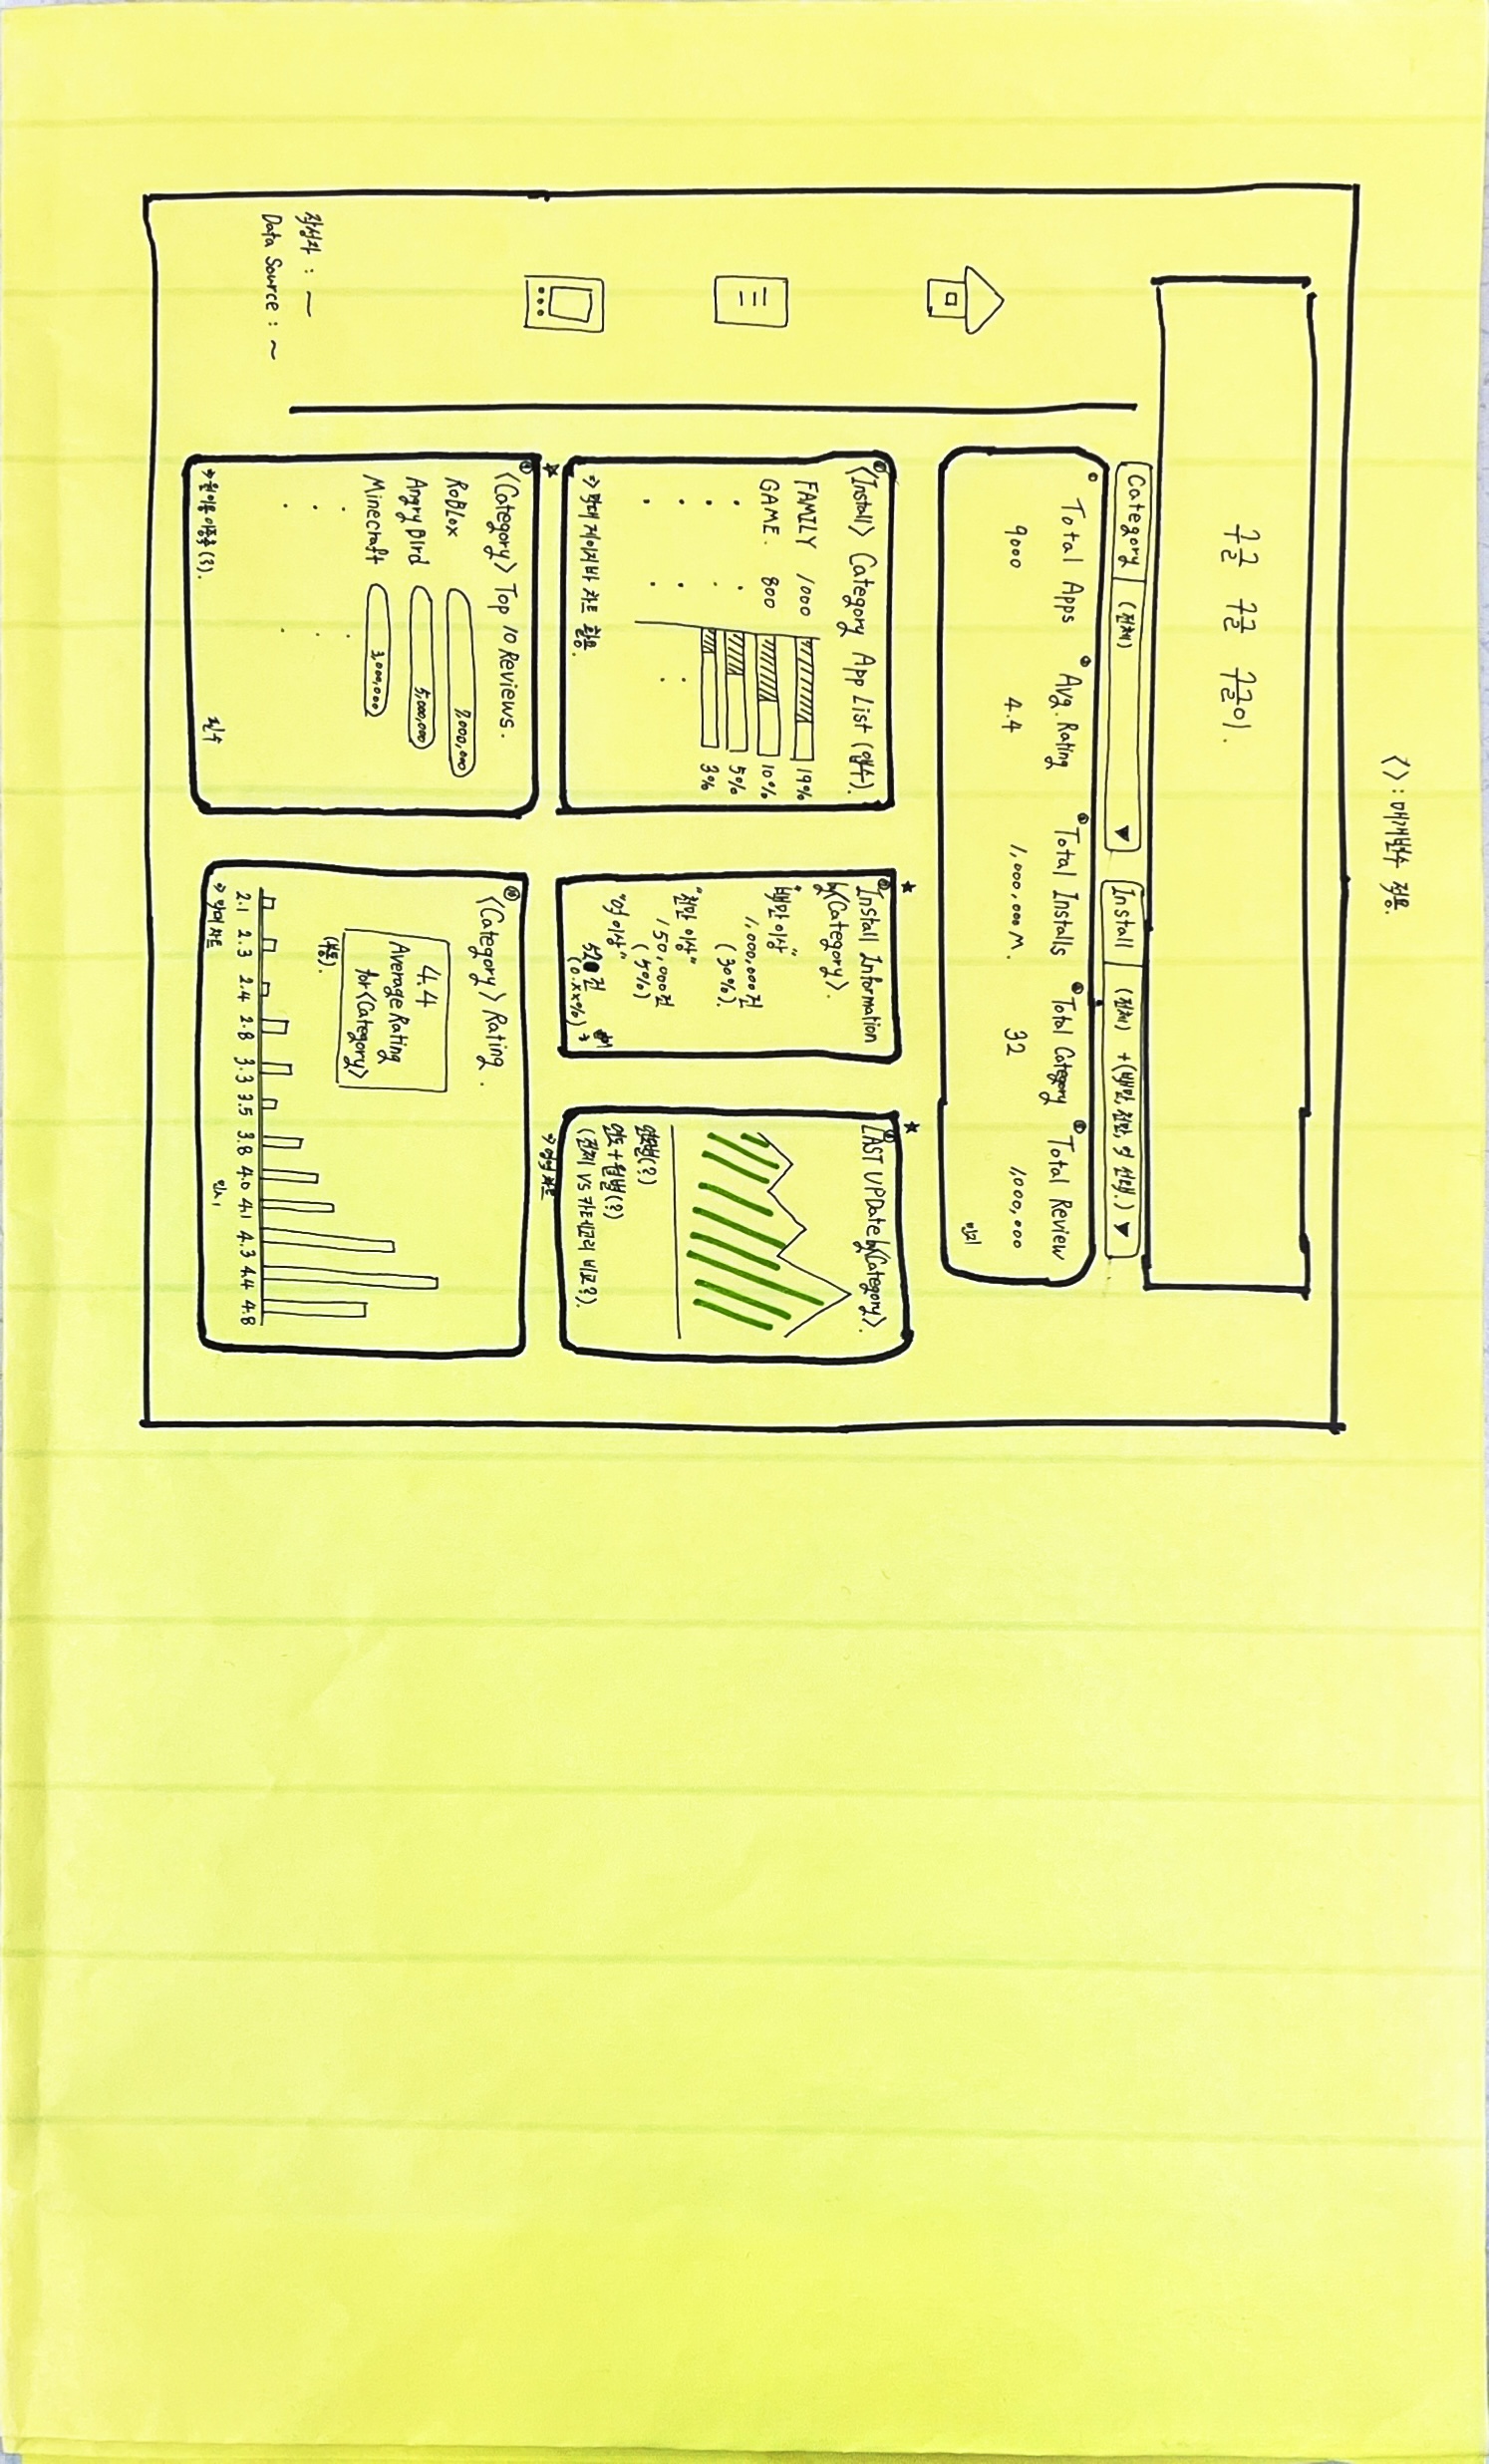 < > : 매개변수 적용.
구글 구글 구글이.
Category (전체) ▼
Install (전체) + (백만, 천만, 억 선택.) ▼
① Total Apps
9000
② Avg. Rating
4.4
③ Total Installs
1,000,000M.
④ Total Category
32
⑤ Total Review
1,000,000
<Install> Category App List (앱수).
FAMILY 1000 19%
GAME. 800 10%
5%
3%
⇒ 막대 게이지바 차트 활용.
Install Information
by <Category>.
"백만 이상"
1,000,000건
(30%).
"천만 이상"
150,000건
(5%)
"억 이상"
건
(0.xx%)
LAST UPDate by <Category>.
연도별(?)
연도+월별(?)
(전체 VS 카테고리 비교?).
⇒ 영역 차트
<Category> Top 10 Reviews.
RoBlox 9,000,000
Angry Bird 5,000,000
Minecraft 3,000,000
<Category> Rating.
4.4
Average Rating
for <Category>
2.1 2.3 2.4 2.8 3.3 3.5 3.8 4.0 4.1 4.3 4.4 4.8
⇒ 막대 차트
작성자 : ~
Data Source : ~